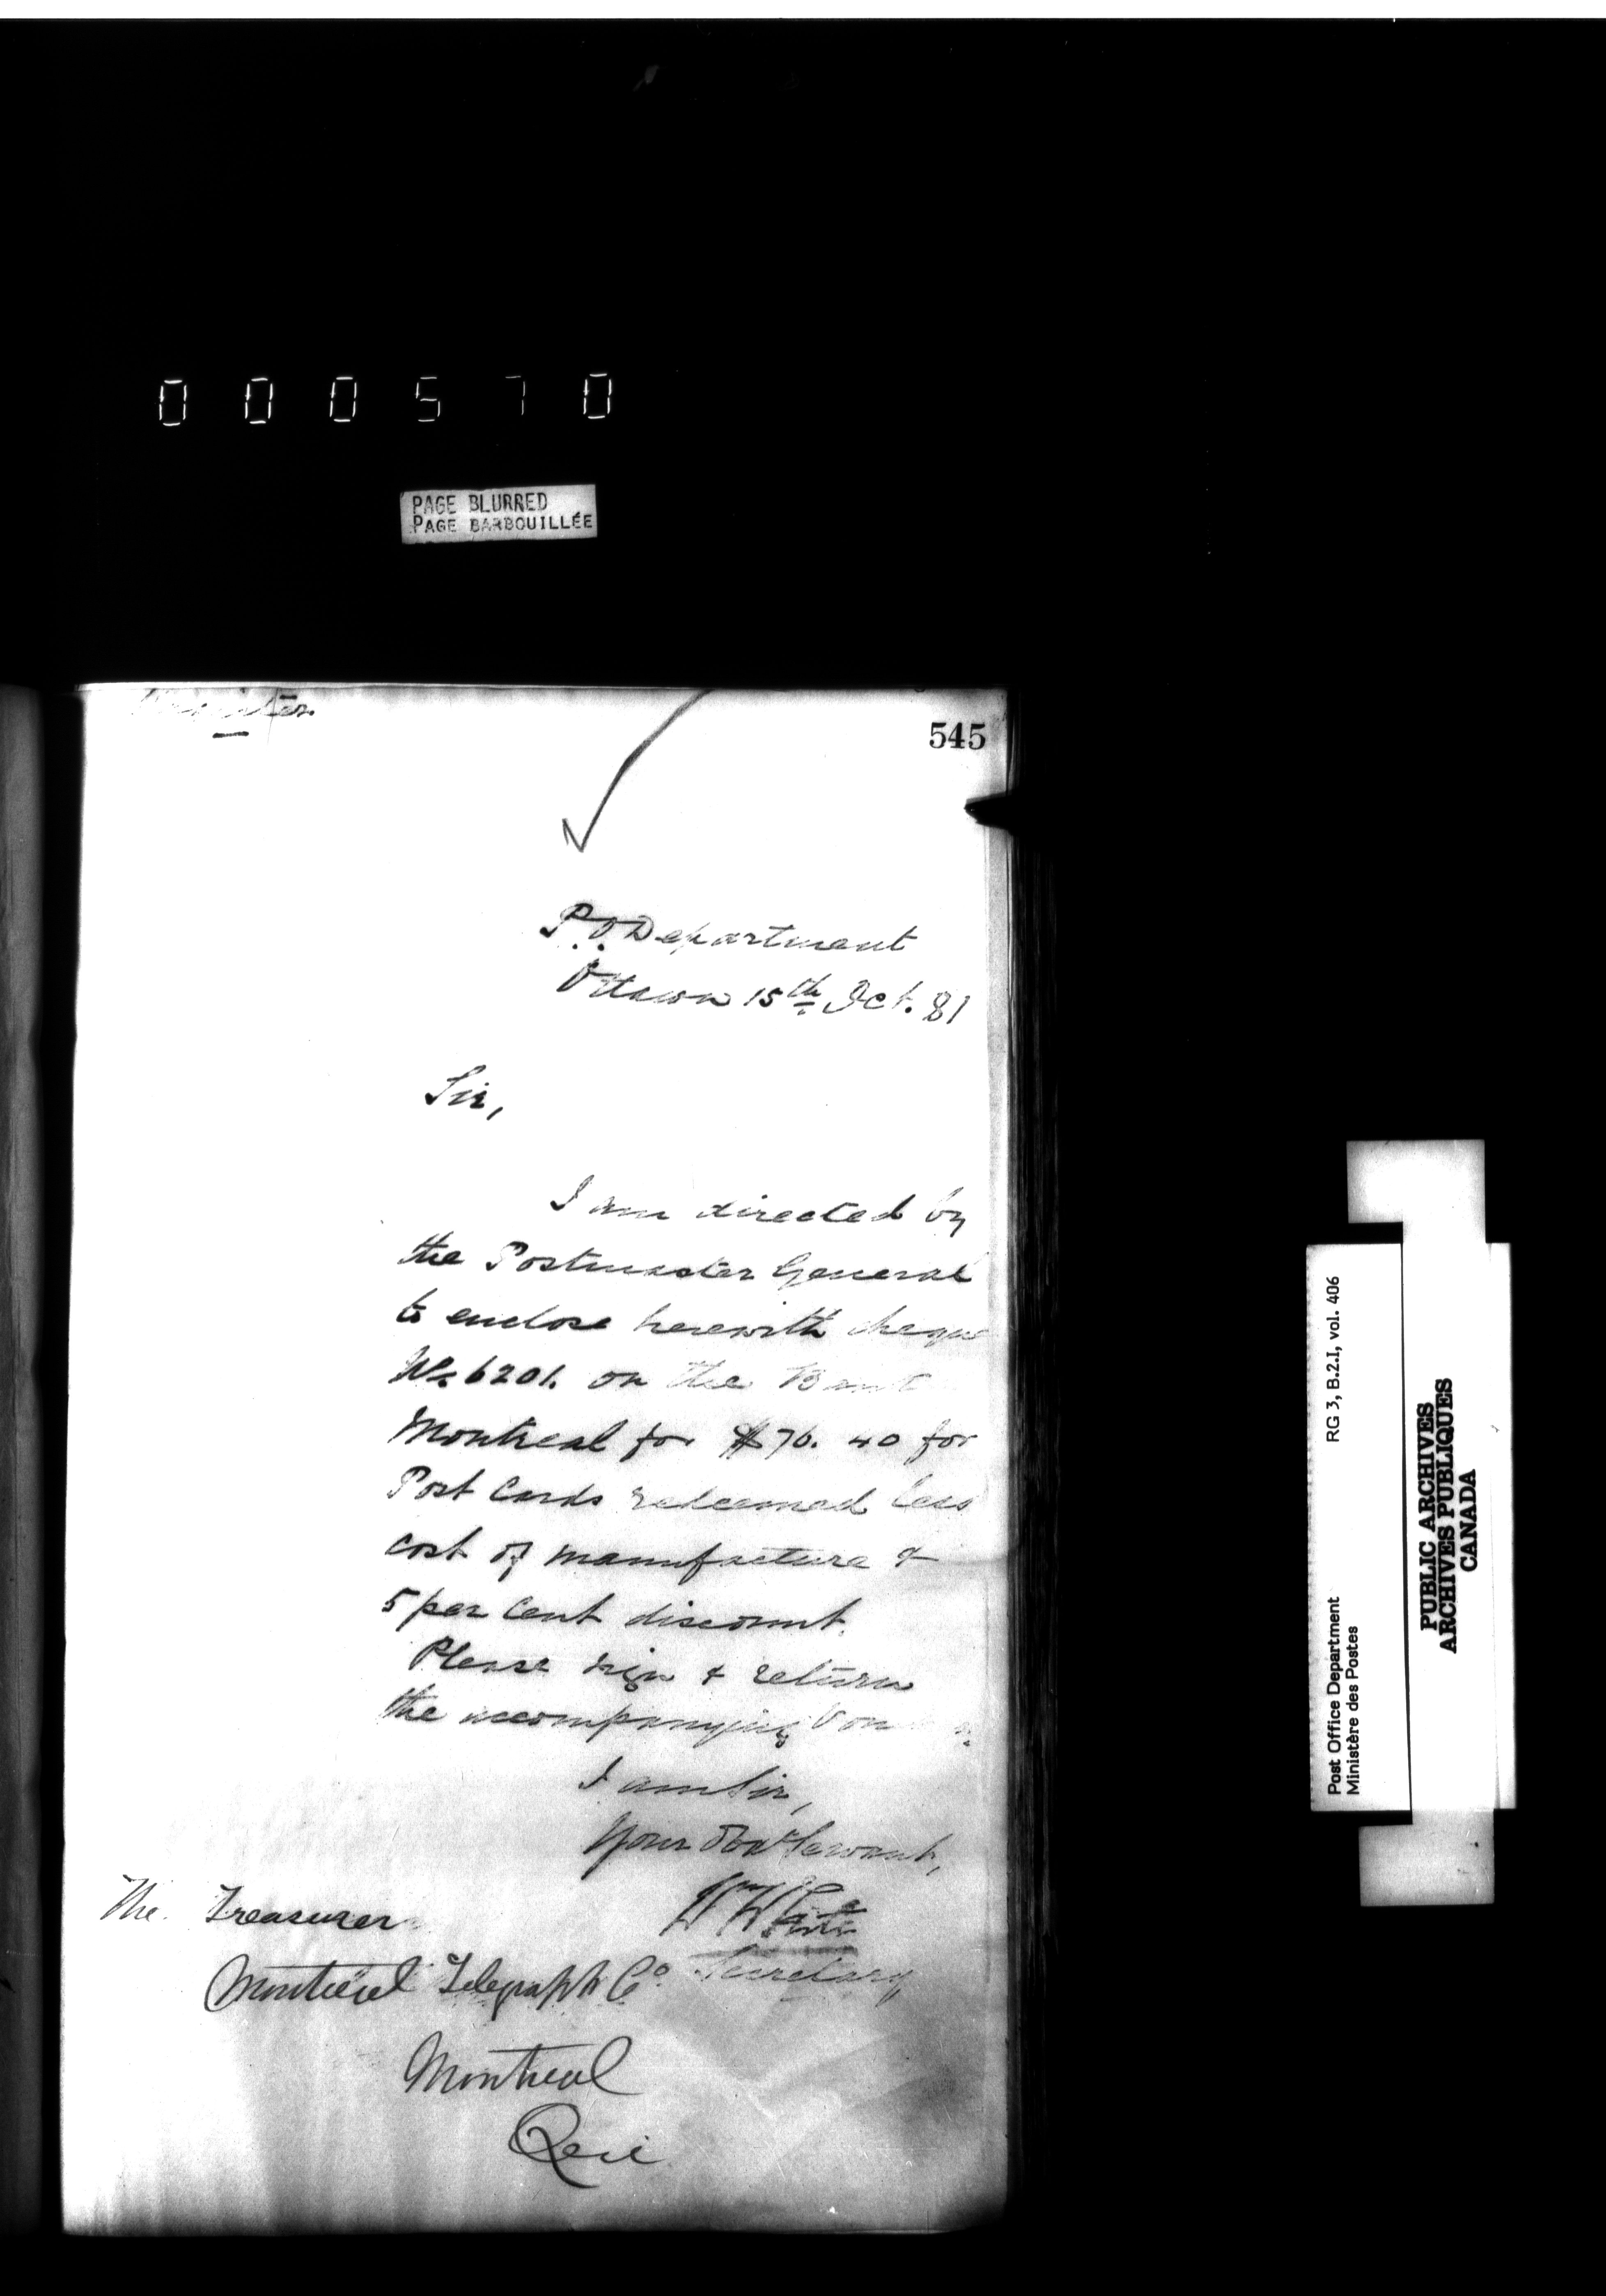 000570
PAGE BLURRED
PAGE BARBOUILLÉE
Register
545
P.O. Department
Ottawa 15th Oct. 81
Sir,
I am directed by
the Postmaster General
to enclose herewith cheque
No 6201. on the Bank
Montreal for $76.40 for
Post Cards redeemed less
cost of manufacture &
5 per cent discount.
Please sign & return
the accompanying
I am Sir,
Your Obdt Servant,
W White
Secretary
The Treasurer
Montreal Telegraph Co.
Montreal
Que
Post Office Department RG 3, B.2.I, vol. 406
Ministère des Postes
PUBLIC ARCHIVES
ARCHIVES PUBLIQUES
CANADA